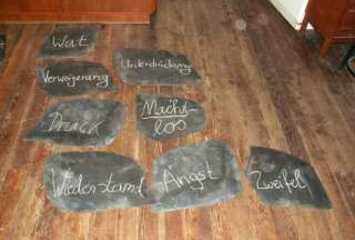 Wut
Unterdrückung
Verweigerung
Macht-
los
Druck
Wiederstand
Angst
Zweifel